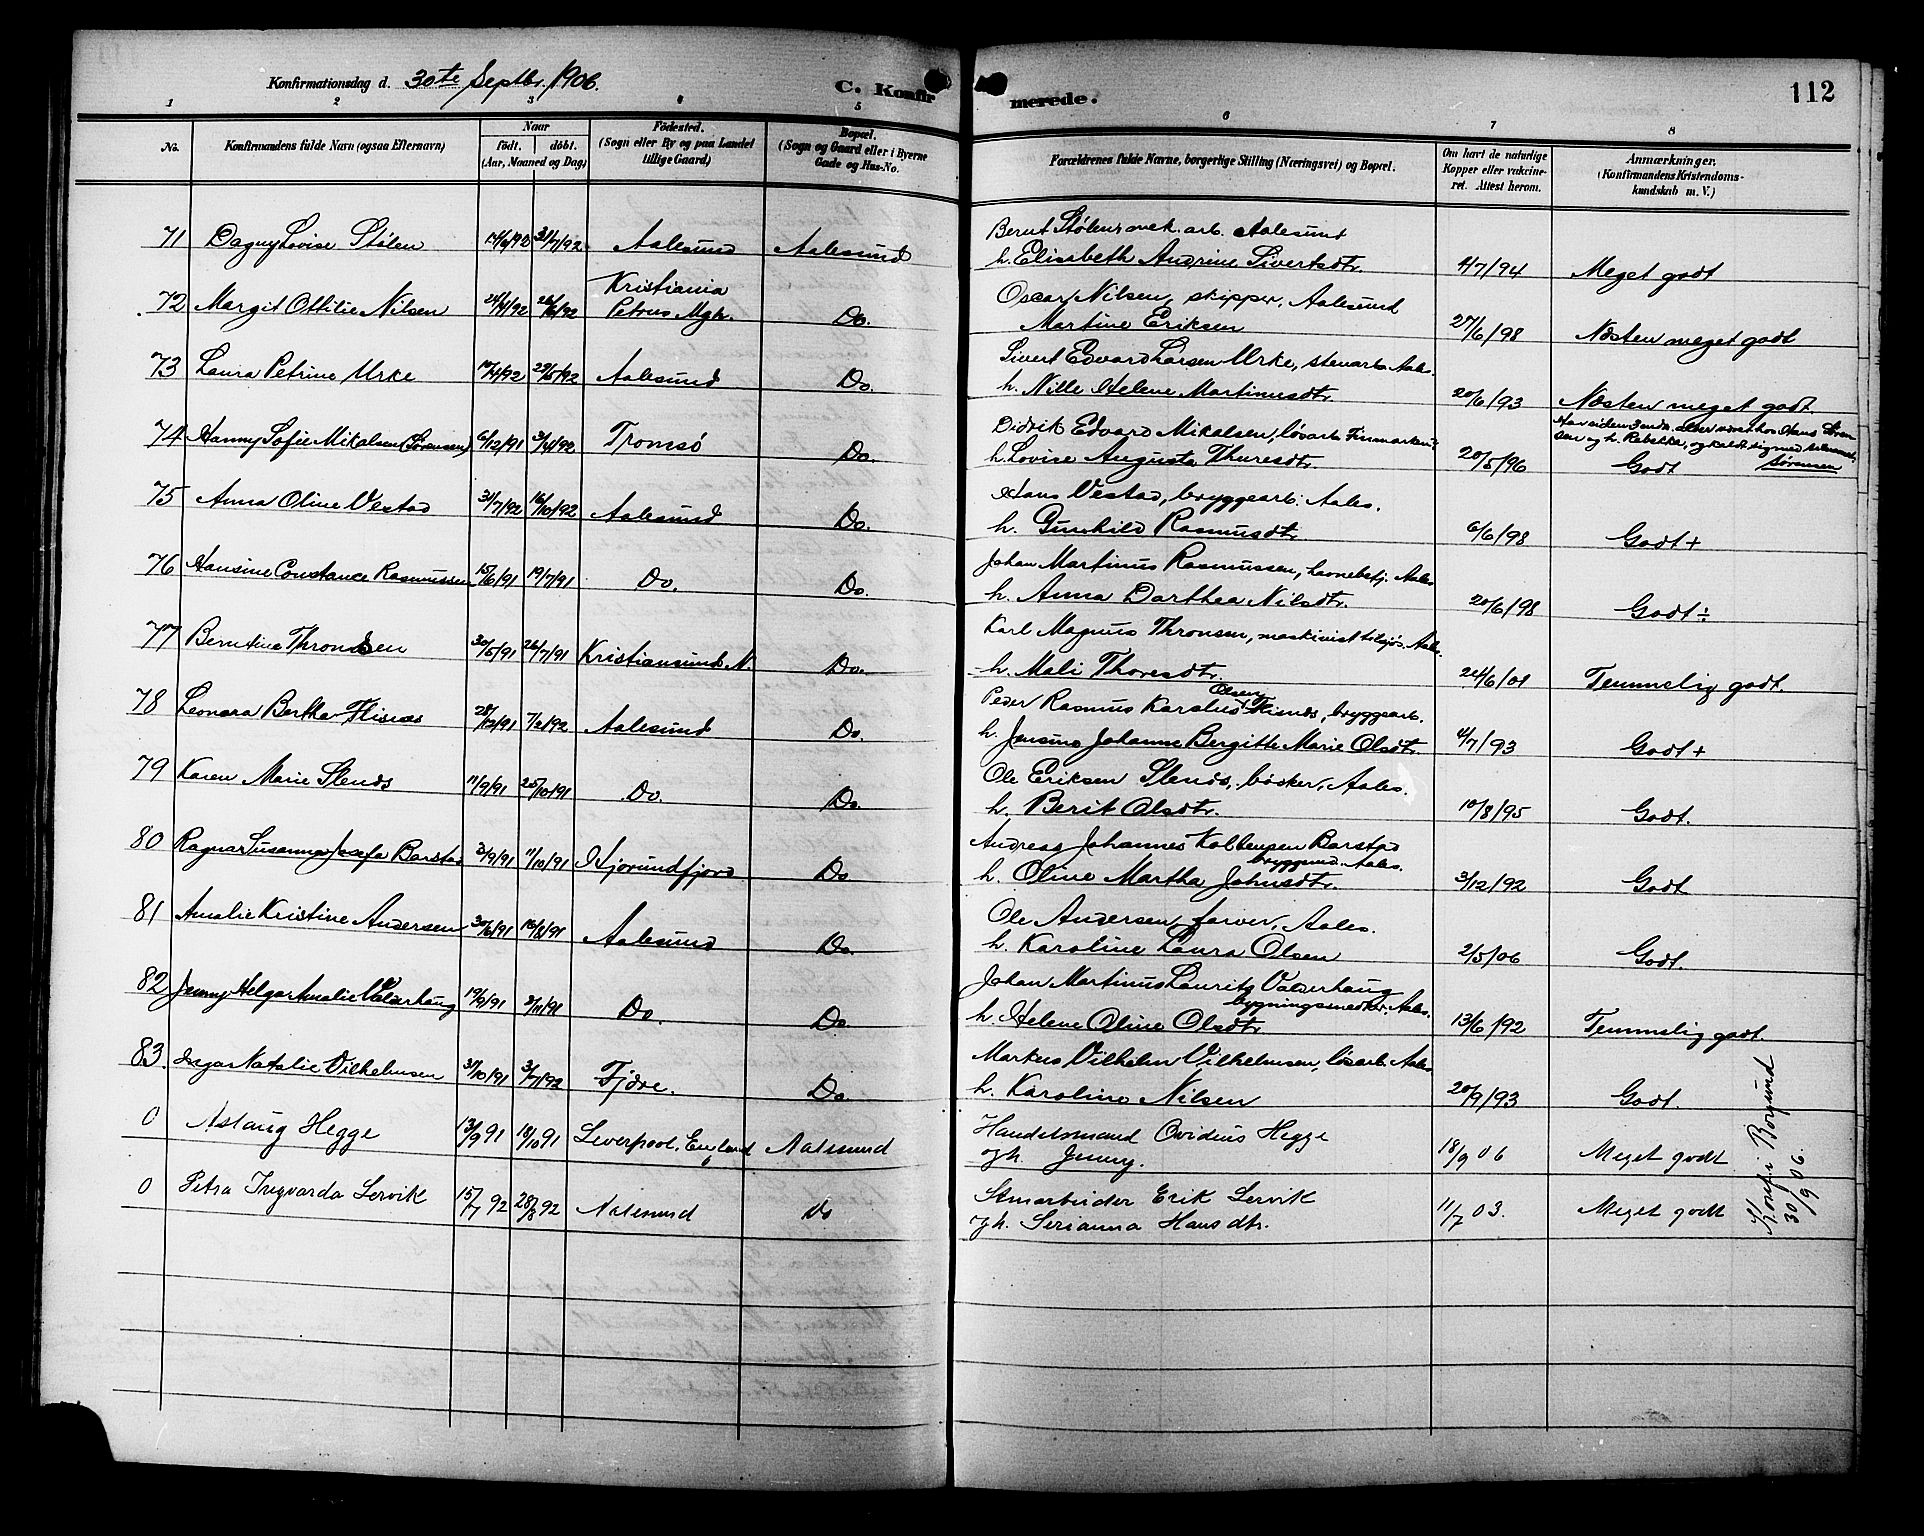 Konfirmationsdag d. 30te Septbr. 1906.
C. Konfirmerede.
112
1 2 3 4 5 6 7 8
No.
Konfirmandens fulde Navn (ogsaa Efternavn)
Naar
født. døbt.
(Aar, Maaned og Dag)
Fødested.
(Sogn eller By og paa Landet
tillige Gaard)
Bopæl.
(Sogn og Gaard eller i Byerne
Gade og Hus-No.
Forældrenes fulde Navne, borgerlige Stilling (Næringsvei) og Bopæl.
Om havt de naturlige
Kopper eller vakcine-
ret. Attest herom.
Anmærkninger.
(Konfirmandens Kristendoms-
kundskab m. V.)
71 Dagny Lovise Stølen 31/7/92 Aalesund Aalesund
Bernt Stølen, mek. arb. Aalesund
h. Elisabeth Andrine Sivertsdtr. 4/7/94 Meget godt
72 Margit Ottilie Nilsen 24/4/92 26/6/92 Kristiania
Petrus Mgh. Do.
Oscar Nilsen, skipper, Aalesund
Martine Eriksen 27/6/98 Næsten meget godt
73 Laura Petrine Urke 10/4/92 29/5/92 Aalesund Do.
Sivert Edvard Larsen Urke, stenarb. Aales.
h. Nille Helene Martinusdtr. 20/6/93 Næsten meget godt
74 Hanny Sofie Mikalsen (Sørensen) 6/12/91 3/4/92 Tromsø Do.
Didrik Edvard Mikalsen, løsarb. Finmarken
h. Lovise Augusta Thuresdtr. 20/5/96 Godt
Har siden 3 mds. alder været hos Hans Søren-
sen og h. Rebekka, og kaldt sig med tilnavnet
Sørensen
75 Anna Oline Vestad 31/7/92 16/10/92 Aalesund Do.
Hans Vestad, bryggearb. Aales.
h. Gunhild Rasmusdtr. 6/6/98 Godt+
76 Hansine Constance Rasmussen 15/6/91 19/7/91 Do. Do.
Johan Martinus Rasmussen, havnebetj. Aales
h. Anna Darthea Nilsdtr. 20/6/98 Godt÷
77 Berntina Thronsen 30/5/91 26/7/91 Kristiansund N. Do.
Karl Magnus Thronsen, maskinist tilsjøs. Aales.
h. Mali Thoresdtr. 24/6/01 Temmelig godt.
78 Leonora Berthe Flisnes 28/12/91 7/2/92 Aalesund Do.
Olsen
Peder Rasmus Karolius Flisnes, bryggearb.
h. Jensine Johanne Bergitte Marie Olsdtr. 4/7/93 Godt+
79 Karen Marie Slends 11/9/91 25/10/91 Do. Do.
Ole Eriksen Slends, bøsker, Aales.
h. Berit Olsdtr. 10/8/95 Godt.
80 Ragna Susanna Josefa Barstad 3/9/91 11/10/91 Hjørundfjord Do
Andreas Johannes Kolbensen Barstad
bryggemd. Aales.
h. Oline Martha Johnsdtr. 3/12/92 Godt
81 Amalie Kristine Andersen 30/6/91 16/8/91 Aalesund Do.
Ole Andersen, farver, Aales.
h. Karoline Laura Olsen 2/5/06 Godt.
82 Jenny Helga Amalie Valderhaug 19/9/91 Do. Do
Johan Martinus Laurits Valderhaug
bygningssnedker. Aales.
h. Helene Oline Olsdtr 13/6/92 Temmelig godt.
83. Inga Natalie Vilhelmsen 31/10/91 3/7/92 Fjøre. Do
Markus Vilhelm Vilhelmsen, løsarb. Aales
h. Karoline Nilsen 20/9/93 Godt.
0 Astaug Hegge 13/9 91 18/10 91 Liverpool, England Aalesund
Handelsmand Ovidius Hegge
og h. Jenny. 18/9 06 Meget godt
0 Petra Ingvarda Lervik 15/7 92 28/8 92 Aalesund Do
Stenarbeider Erik Lervik
og h. Serianna Hansdtr. 11/7 03. Meget godt
Konf. i Borgund
30/9 06.